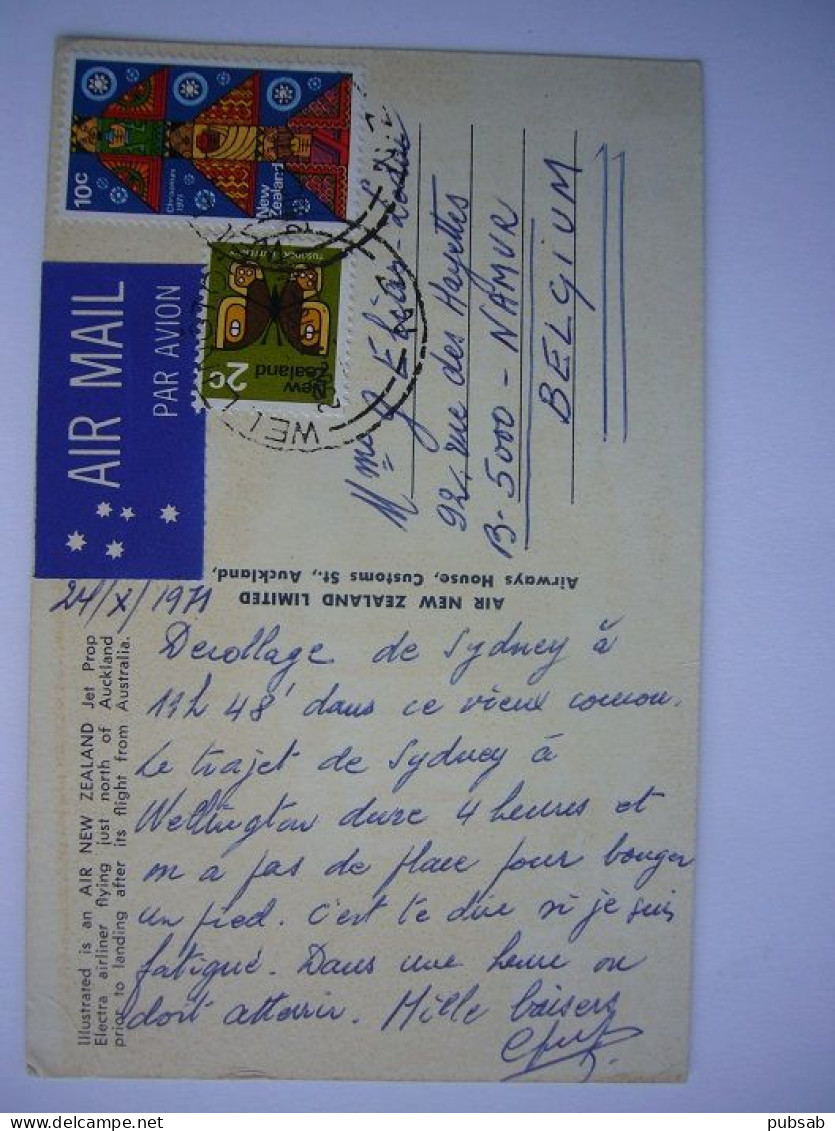 Illustrated is an AIR NEW ZEALAND Jet Prop
Electra airliner flying just north of Auckland
prior to landing after its flight from Australia.
24/X/1971
Decollage de Sydney à
11h 48' dans ce vieux coucou.
Le trajet de Sydney à
Wellington dure 4 heures et
on a pas de place pour bouger
un pied. C'est te dire si je suis
fatigué. Dans une heure on
doit atterrir. Mille baisers
AIR NEW ZEALAND LIMITED
Airways House, Customs St., Auckland,
AIR MAIL
PAR AVION
10c
Christmas
1971
New
Zealand
2c
New
Zealand
WELL
Mme J
92, rue des Hayettes
B-5000-NAMUR
BELGIUM
pubsab